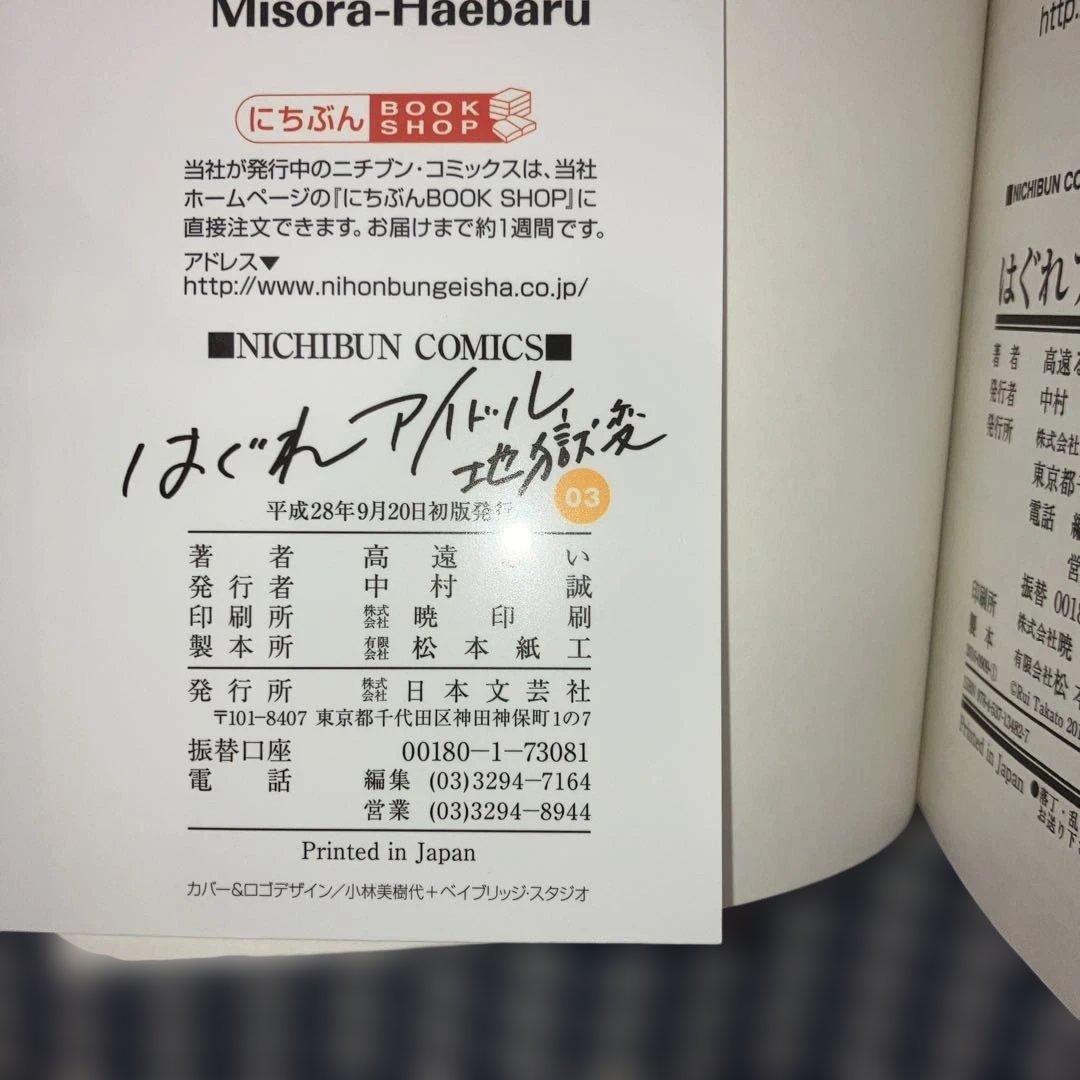 Misora-Haebaru
にちぶん BOOK SHOP
当社が発行中のニチブン・コミックスは、当社
ホームページの『にちぶんBOOK SHOP』に
直接注文できます。お届けまで約1週間です。
アドレス▼
http://www.nihonbungeisha.co.jp/
■NICHIBUN COMICS■
はぐれアイドル
地獄変
03
平成28年9月20日初版発行
著者 高遠 い
発行者 中村誠
印刷所 株式会社 暁印刷
製本所 有限会社 松本紙工
発行所 株式会社 日本文芸社
〒101-8407 東京都千代田区神田神保町1の7
振替口座 00180-1-73081
電話 編集 (03)3294-7164
営業 (03)3294-8944
Printed in Japan
カバー&ロゴデザイン/小林美樹代+ベイブリッジ・スタジオ
http:
■NICHIBUN CO
はぐれア
著者 高遠る
発行者 中村
発行所 株式会社
東京都千
電話 編
営
振替 0018
印刷所 株式会社暁
製本 有限会社松本
©Rui Takato 201
ISBN 978-4-537-13482-7
Printed in Japan ●落丁・乱
お送り下さ